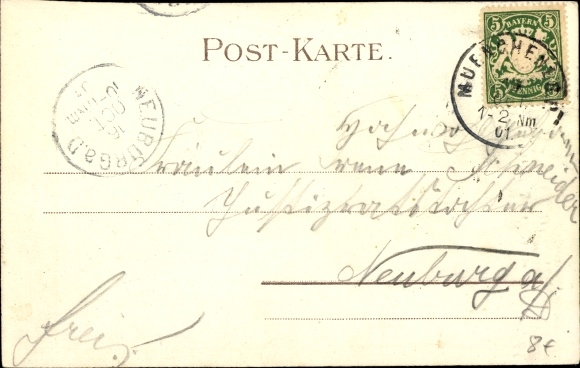 POST-KARTE.
5 BAYERN 5
PFENNIG
MUENCHEN
1-2 Nm
01
NEUBURG a.D
10 OCT
Fräulein
Schneider
Justizratstochter
Neuburg a/D
frei.
8€